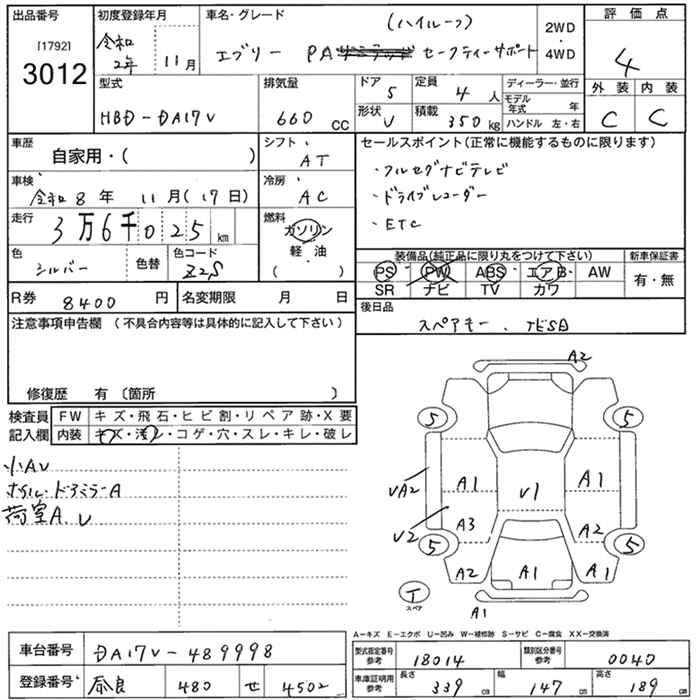 出品番号 初度登録年月 車名・グレード (ハイルーフ) 評価点
[1792] 3012 令和2年 11月 エブリー PA セーフティーサポート 2WD・4WD 4
型式 HBD-DA17V 排気量 660 CC ドア 5 定員 4人 ディーラー・並行 外装 内装
形状 V 積載 350kg モデル年式 年 ハンドル 左・右 C C
車歴 自家用・( ) シフト AT セールスポイント(正常に機能するものに限ります)
車検 令和8年 11月(17日) 冷房 AC ・フルセグナビテレビ
・ドライブレコーダー
走行 3万6千025km 燃料 ガソリン ・軽油 ( ) ・ETC
色 シルバー 色替 色コード Z2S 装備品(純正品に限り丸をつけて下さい) 新車保証書
PS PW ABS エアB AW 有・無
SR ナビ TV カワ
R券 8400円 名変期限 月 日 後日品
スペアキー、
注意事項申告欄 (不具合内容等は具体的に記入して下さい)
修復歴 有 〔箇所 〕
検査員記入欄 FW キズ・飛石・ヒビ割・リペア跡・X要
内装 キズ・汚レ・コゲ・穴・スレ・キレ・破レ
小AU
ホイル・ドアミラーA
荷室A、U
A2
5 5
A1 A1
UA2 V1
U2 A3 A2
5 5
A2 A1 A1
T スペア
A1
A-キズ E-エクボ U-凹み W-補修跡 S-サビ C-腐食 XX-交換済
車台番号 DA17V-489998 型式指定番号 参考 18014 類別区分番号 参考 0040
登録番号 奈良 480 せ 4502 車庫証明用 参考 長さ 339cm 幅 147cm 高さ 189cm